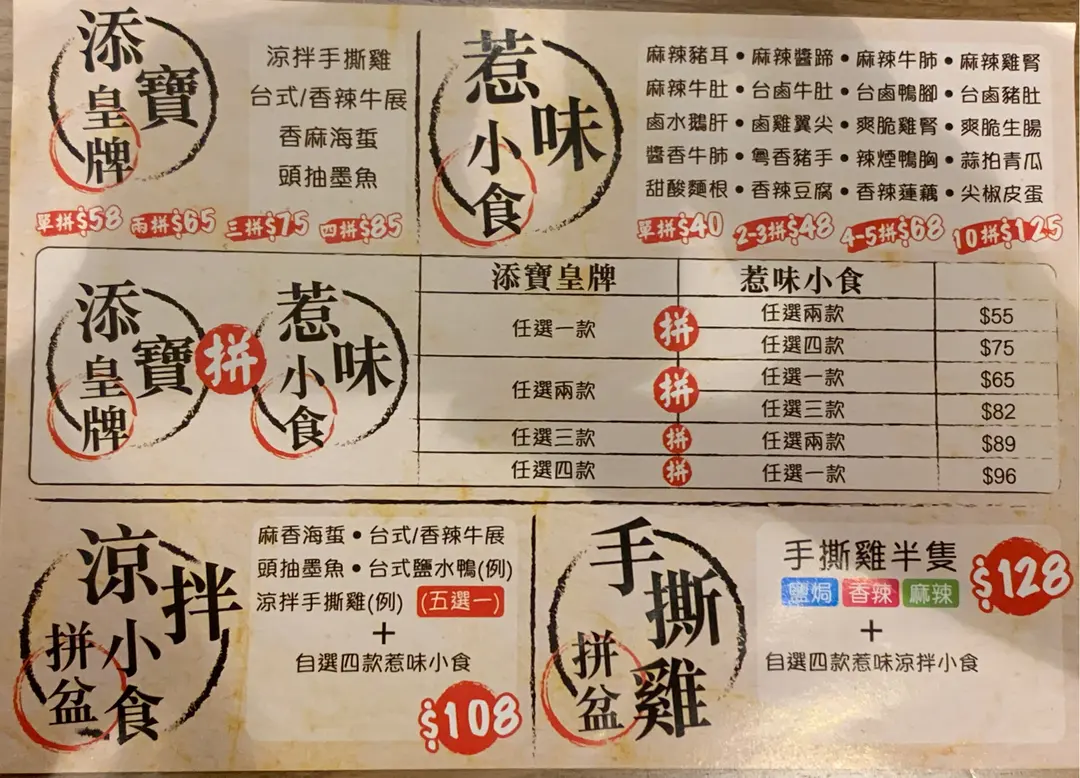 添寶皇牌
涼拌手撕雞
台式/香辣牛展
香麻海蜇
頭抽墨魚
單拼$58 兩拼$65 三拼$75 四拼$85
惹味小食
麻辣豬耳•麻辣醬蹄•麻辣牛肺•麻辣雞腎
麻辣牛肚•台鹵牛肚•台鹵鴨腳•台鹵豬肚
鹵水鵝肝•鹵雞翼尖•爽脆雞腎•爽脆生腸
醬香牛肺•粵香豬手•辣煙鴨胸•蒜拍青瓜
甜酸麵根•香辣豆腐•香辣蓮藕•尖椒皮蛋
單拼$40 2-3拼$48 4-5拼$68 10拼$125
添寶皇牌 拼 惹味小食
添寶皇牌 惹味小食
任選一款 拼 任選兩款 $55
任選四款 $75
任選兩款 拼 任選一款 $65
任選三款 $82
任選三款 拼 任選兩款 $89
任選四款 拼 任選一款 $96
涼拌小食拼盆
麻香海蜇•台式/香辣牛展
頭抽墨魚•台式鹽水鴨(例)
涼拌手撕雞(例) (五選一)
+
自選四款惹味小食
$108
手撕雞拼盆
手撕雞半隻
鹽焗 香辣 麻辣
$128
+
自選四款惹味涼拌小食